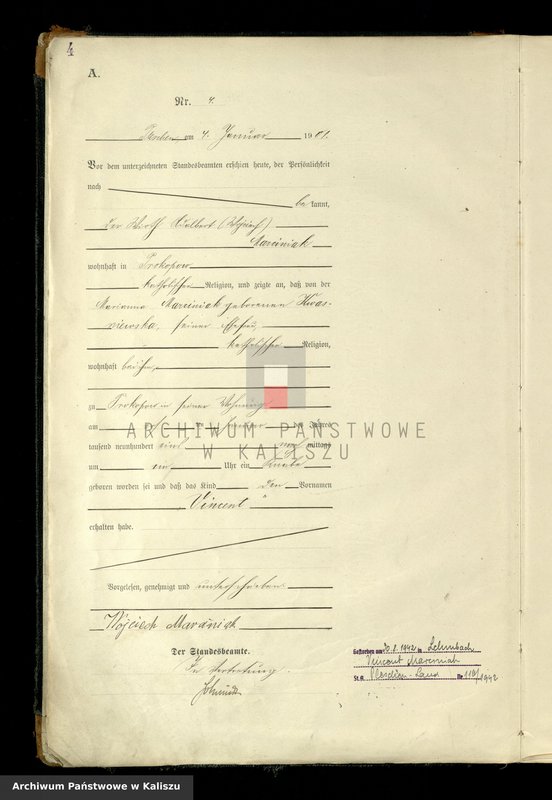 4
A.
Nr. 4.
am 4. Januar 1901.
Vor dem unterzeichneten Standesbeamten erschien heute, der Persönlichkeit
nach
be kannt,
der Wirth Adalbert (Wojciech)
Marciniak
wohnhaft in Prokopow
katholischer Religion, und zeigte an, daß von der
Marianna Marciniak geborenen Kwas-
niewska, seiner Ehefrau,
katholischer Religion,
wohnhaft bei ihm,
zu Prokopow in seiner Wohnung
am Januar des Jahres
tausend neunhundert eins nach mittags
um Uhr ein Knabe
geboren worden sei und daß das Kind den Vornamen
"Vincent"
erhalten habe.
Vorgelesen, genehmigt und unterschrieben.
Wojciech Marciniak
Der Standesbeamte.
In Vertretung.
Gestorben am 1942 in
Vincent Marciniak
St.A. Pleschen-Land Nr 1942
ARCHIWUM PAŃSTWOWE
W KALISZU
Archiwum Państwowe w Kaliszu